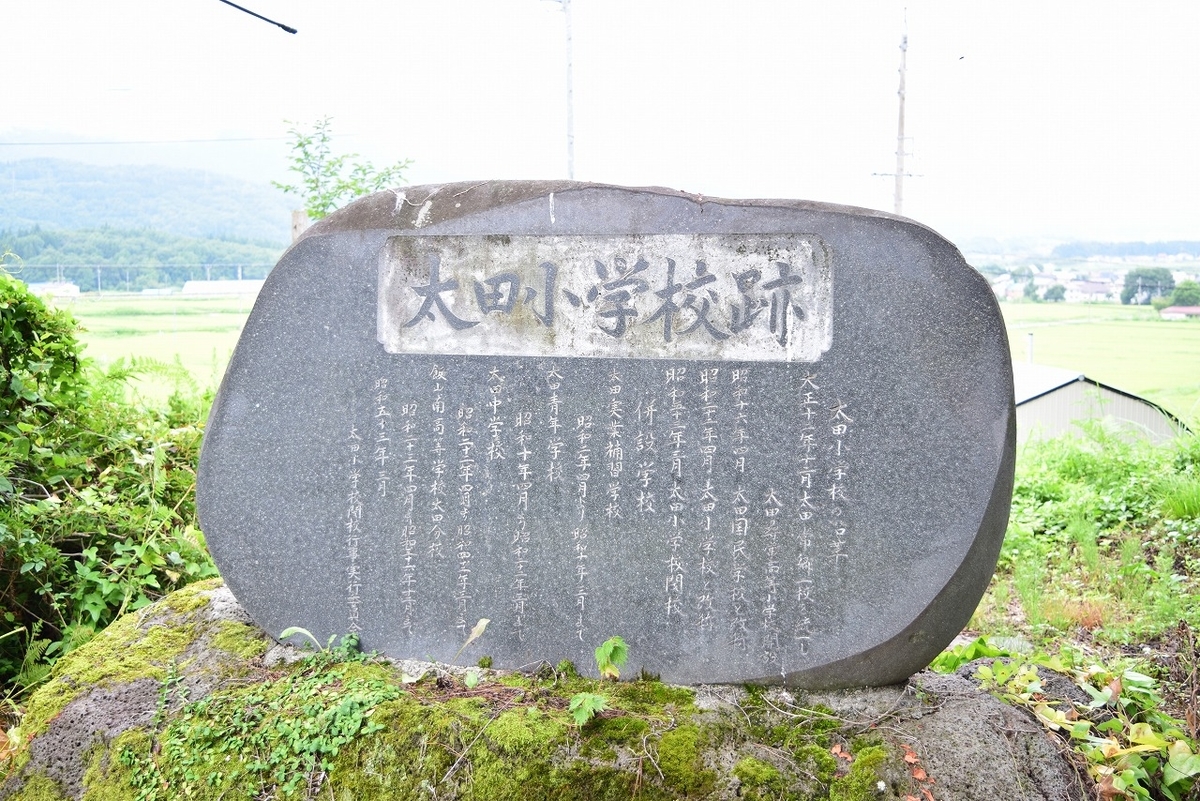 太田小学校跡
太田小学校の沿革
大正十一年十一月太田、常郷一校を統一し
太田尋常高等小学校開設
昭和十六年四月 太田国民学校と改称
昭和二十二年四月 太田小学校と改称
昭和五十三年三月 太田小学校閉校
併設学校
太田実業補習学校
昭和二年四月より昭和十年三月まで
太田青年学校
昭和十年四月より昭和二十二年三月まで
太田中学校
昭和二十二年四月より昭和四十二年三月まで
飯山南高等学校太田分校
昭和五十三年三月
太田小学校閉校行事実行委員会